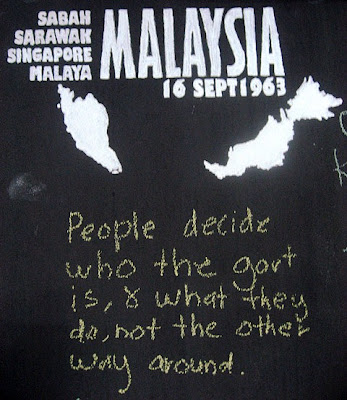 SABAH
SARAWAK
SINGAPORE
MALAYA
MALAYSIA
16 SEPT 1963
People decide
who the govt
is, & what they
do, not the other
way around.